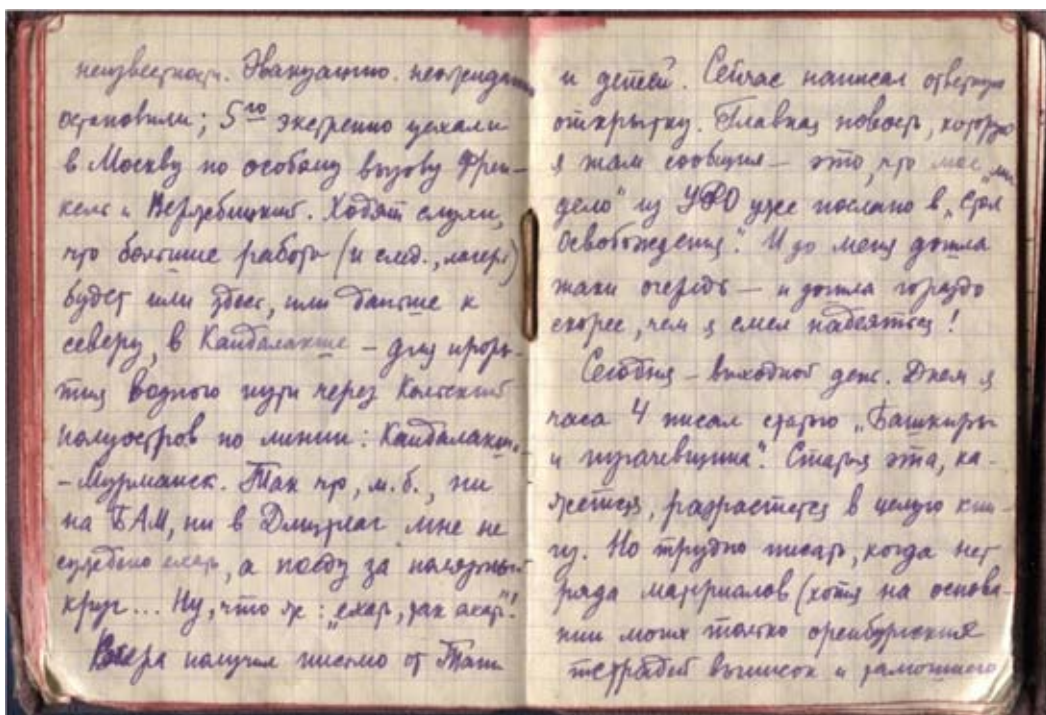 неизвестности. Эвакуацию неожиданно
остановили; 5го экстренно уехали
в Москву по особому вызову Френ-
кель и Вержбицкий. Ходят слухи,
что большие работы (и след., лагерь)
будет или здесь, или дальше к
северу, в Кандалакше – для проры-
тия водного пути через Кольский
полуостров по линии: Кандалакша
– Мурманск. Так что, м. б., ни
на БАМ, ни в Дмитлаг мне не
суждено ехать, а поеду за полярный
круг... Ну, что ж: „ехать, так ехать"!
Вчера получил письмо от Тани
и детей. Сейчас написал ответную
открытку. Главная новость, которую
я там сообщил – это, что мое
дело" из УРО уже послано в „Стол
Освобождения". И до меня дошла
таки очередь – и дошла гораздо
скорее, чем я смел надеяться!
Сегодня – выходной день. Днем я
часа 4 писал статью „Башкиры
и пугачевщина". Статья эта, ка-
жется, разрастется в целую кни-
гу. Но трудно писать, когда нет
ряда материалов (хотя на основа-
нии моих только оренбургских
тетрадей выписок и